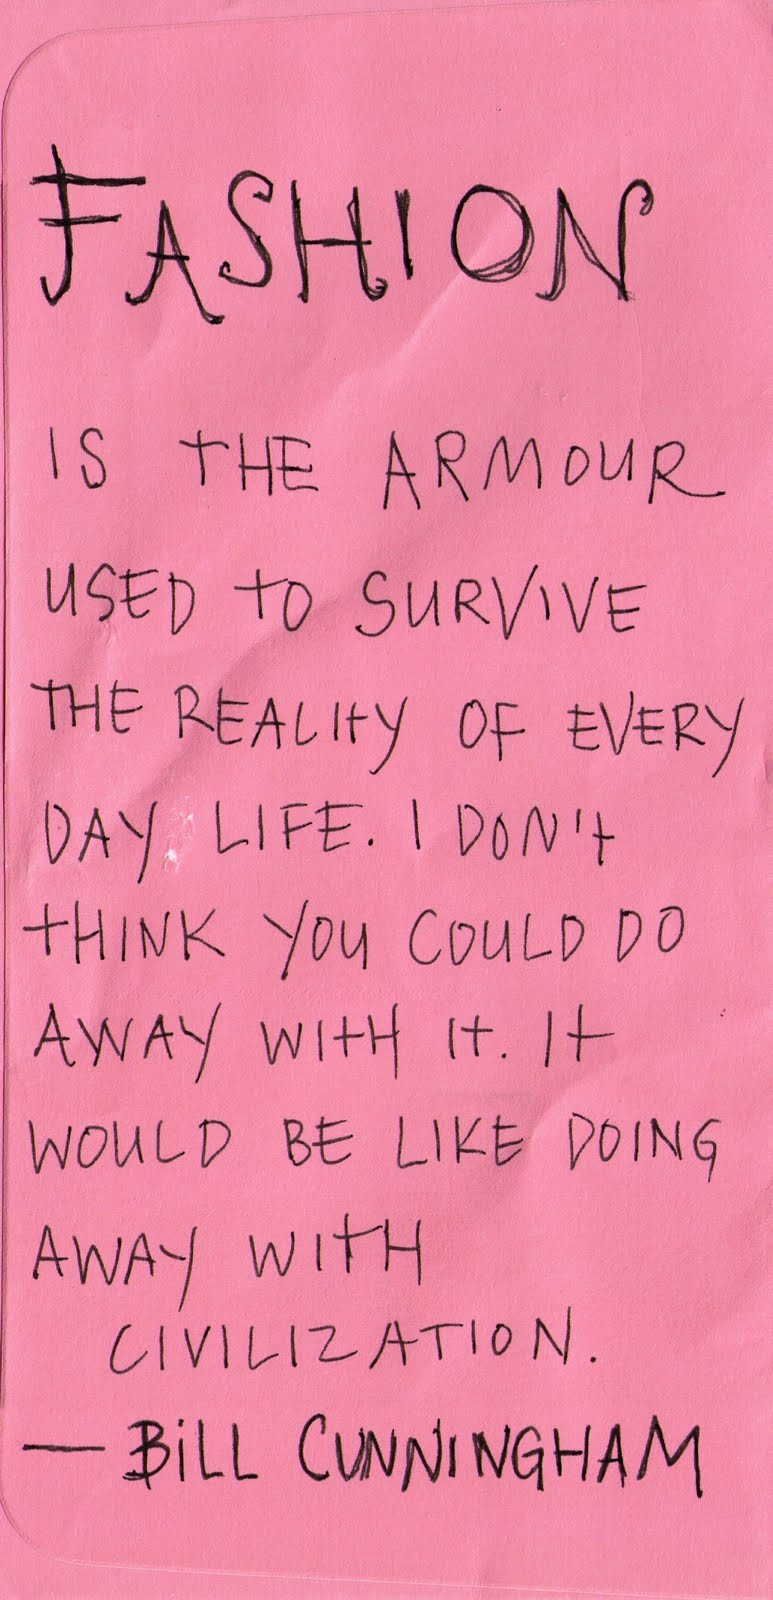 FASHION
IS THE ARMOUR
USED TO SURVIVE
THE REALITY OF EVERY
DAY LIFE. I DON't
tHINK YOU COULD DO
AWAY WItH It. It
WOULD BE LIKE DOING
AWAY WItH
CIVILIZATION.
— BiLL CUNNINGHAM